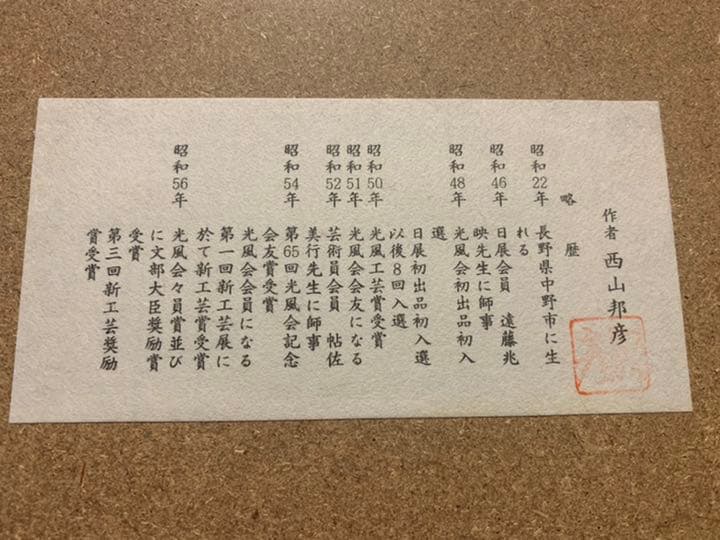 作者 西山邦彦
略歴
昭和22年 長野県中野市に生
れる
昭和46年 日展会員 遠藤兆
映先生に師事
昭和48年 光風会初出品初入
選
日展初出品初入選
以後8回入選
昭和50年 光風工芸賞受賞
昭和51年 光風会会友になる
昭和52年 芸術員会員 帖佐
美行先生に師事
昭和54年 第65回光風会記念
会友賞受賞
光風会会員になる
第一回新工芸展に
於て新工芸賞受賞
昭和56年 光風会々員賞並び
に文部大臣奨励賞
受賞
第三回新工芸奨励
賞受賞